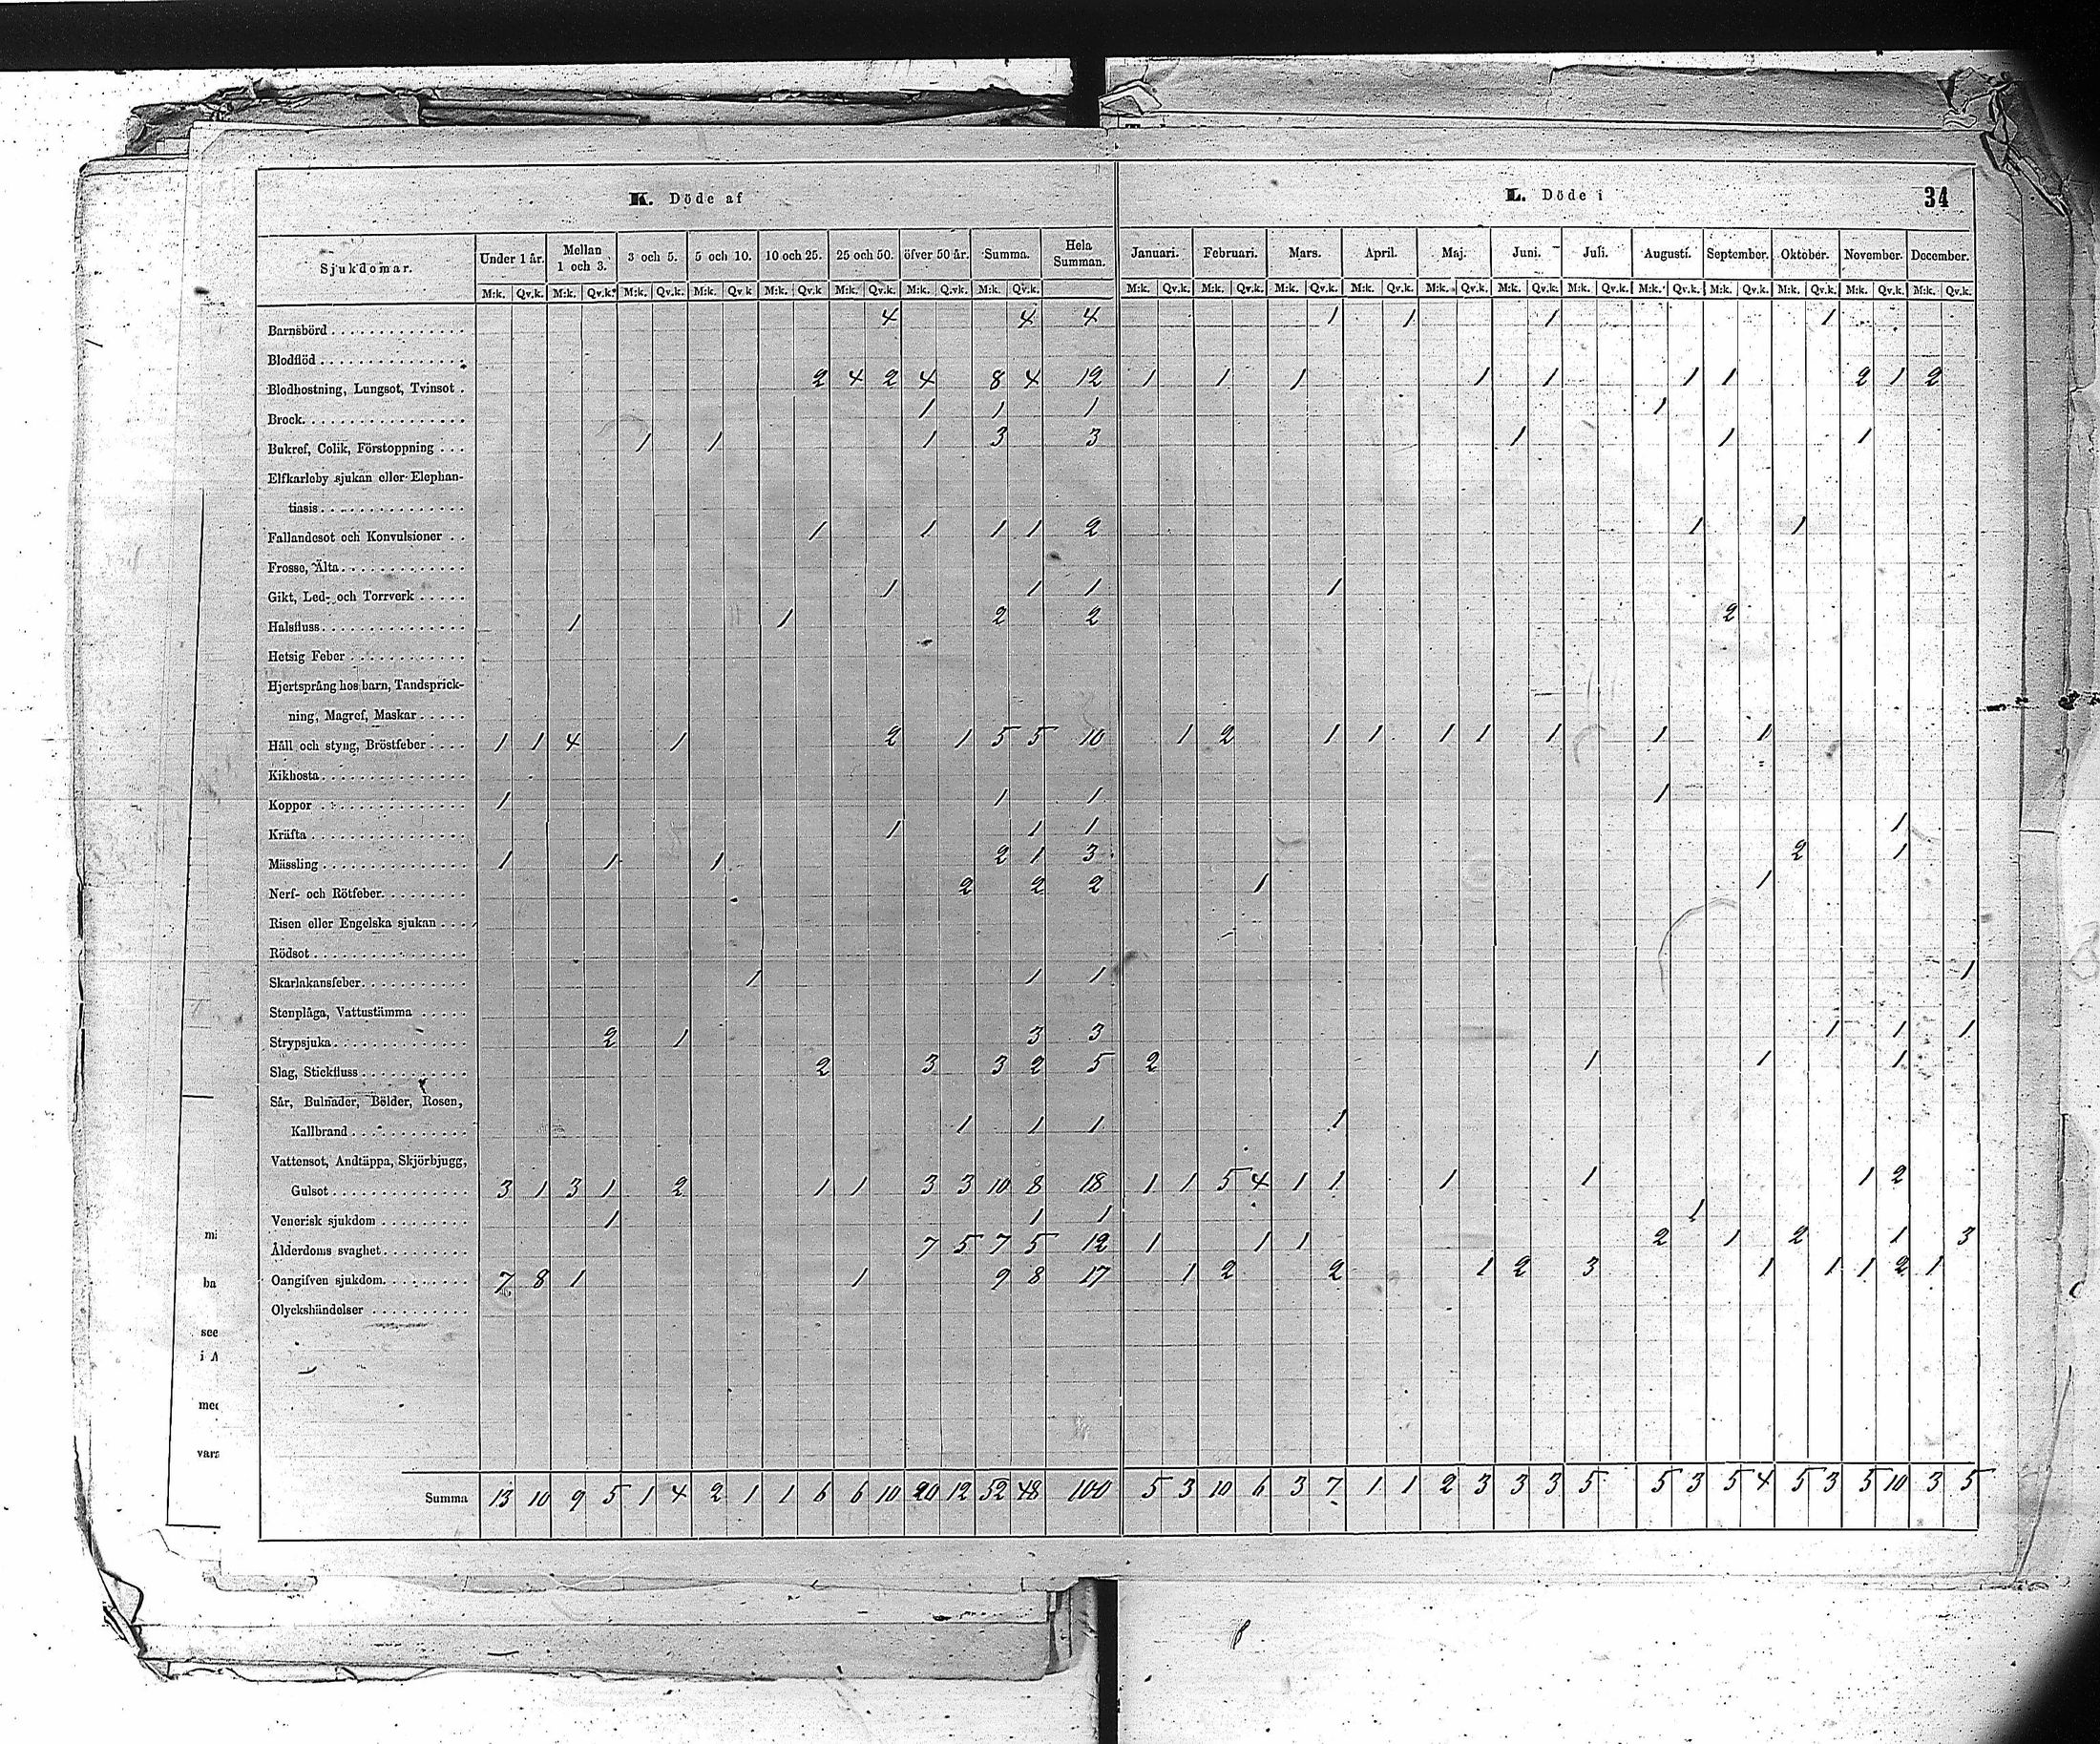 K. Döde af
L. Döde i 34
Sjukdomar. Under 1 år. Mellan 1 och 3. 3 och 5. 5 och 10. 10 och 25. 25 och 50. öfver 50 år. Summa. Hela Summan. Januari. Februari. Mars. April. Maj. Juni. Juli. Augusti. September. Oktober. November. December.
M:k. Qv.k. M:k. Qv.k. M:k. Qv.k. M:k. Qv.k M:k. Qv.k M:k. Qv.k. M:k. Q.vk. M:k. Qv.k. M:k. Qv.k. M:k. Qv.k. M:k. Qv.k. M:k. Qv.k. M:k. Qv.k. M:k. Qv.k. M:k. Qv.k. M:k. Qv.k. M:k. Qv.k. M:k. Qv.k. M:k. Qv.k. M:k. Qv.k.
Barnsbörd 4 4 4 1 1 1 1
Blodflöd
Blodhostning, Lungsot, Tvinsot 2 4 2 4 8 4 12 1 1 1 1 1 1 1 2 1 2
Brock 1 1 1 1
Bukref, Colik, Förstoppning 1 1 1 3 3 1 1 1
Elfkarleby sjukan eller Elephan-
tiasis
Fallandesot och Konvulsioner 1 1 1 1 2 1 1
Frosse, Älta
Gikt, Led- och Torrverk 1 1 1 1
Halsfluss 1 1 2 2 2
Hetsig Feber
Hjertsprång hos barn, Tandsprick-
ning, Magref, Maskar
Håll och styng, Bröstfeber 1 1 4 1 2 1 5 5 10 1 2 1 1 1 1 1 1 1
Kikhosta
Koppor 1 1 1 1
Kräfta 1 1 1 1
Mässling 1 1 1 2 1 3 2 1
Nerf- och Rötfeber 2 2 2 1 1
Risen eller Engelska sjukan
Rödsot
Skarlakansfeber 1 1 1 1
Stenplåga, Vattustämma
Strypsjuka 2 1 3 3 1 1 1
Slag, Stickfluss 2 3 3 2 5 2 1 1 1
Sår, Bulnader, Bölder, Rosen,
Kallbrand 1 1 1 1
Vattensot, Andtäppa, Skjörbjugg,
Gulsot 3 1 3 1 2 1 1 3 3 10 8 18 1 1 5 4 1 1 1 1 1 2
Venerisk sjukdom 1 1 1 1
Ålderdoms svaghet 7 5 7 5 12 1 1 1 2 1 2 1 3
Oangifven sjukdom 7 8 1 1 9 8 17 1 2 2 1 2 3 1 1 1 2 1
Olyckshändelser
Summa 13 10 9 5 1 4 2 1 1 6 6 10 20 12 52 48 100 5 3 10 6 3 7 1 1 2 3 3 3 5 5 3 5 4 5 3 5 10 3 5
mi
ba
see
i A
med
vara